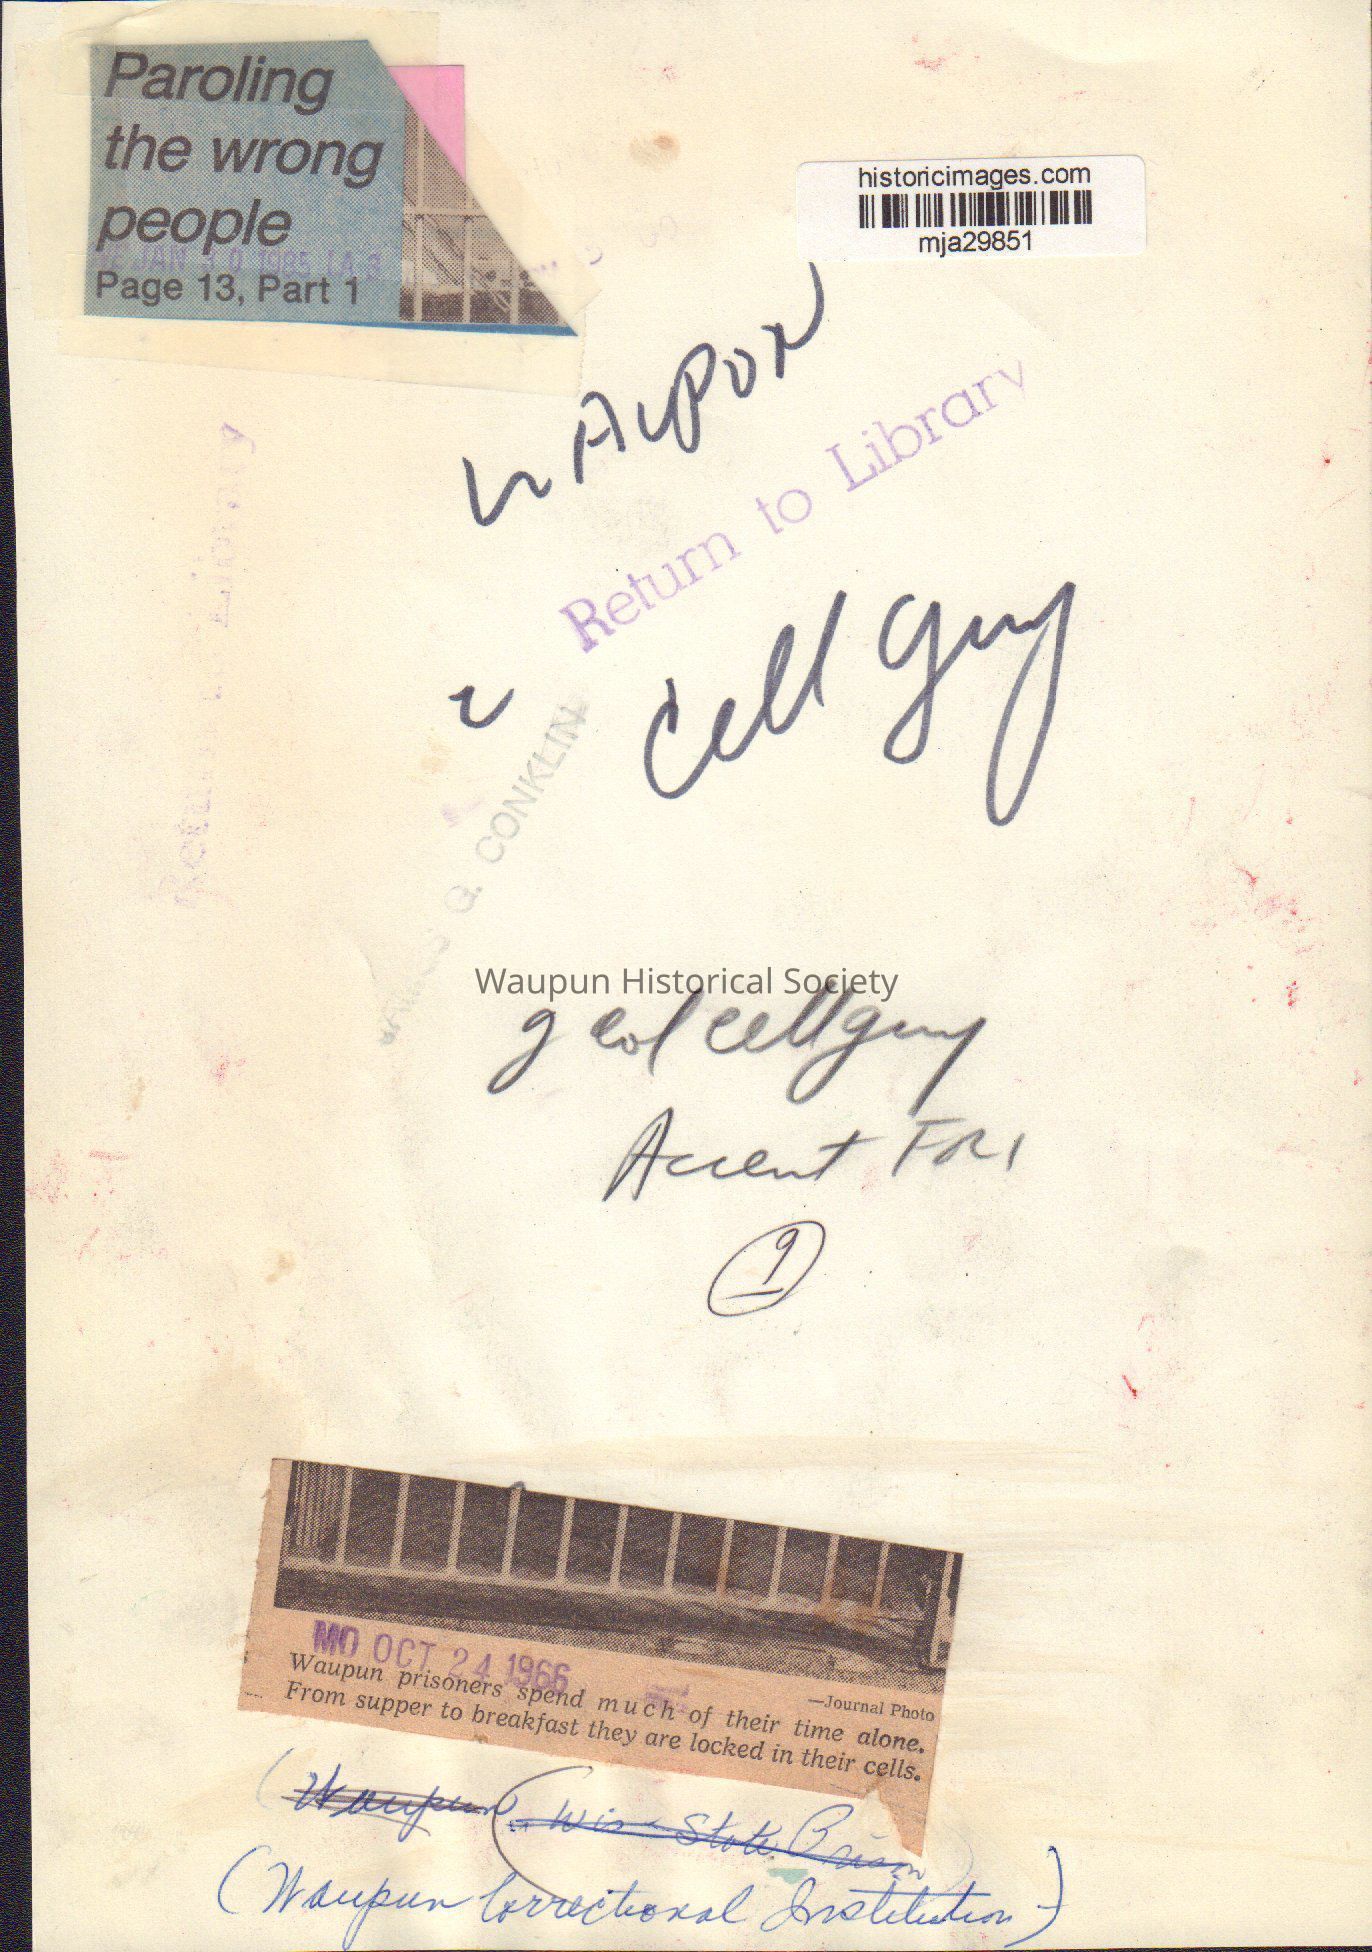 Paroling
the wrong
people
JAN 10 1985
Page 13, Part 1
historicimages.com
mja29851
WAUPUN
Return to Library
Cell guy
Q. CONKLIN
Waupun Historical Society
cellguy
Accent FRI
9
MO OCT 24 1966
—Journal Photo
Waupun prisoners spend much of their time alone.
From supper to breakfast they are locked in their cells.
(Waupun (Wis State Prison)
(Waupun Correctional Institution)